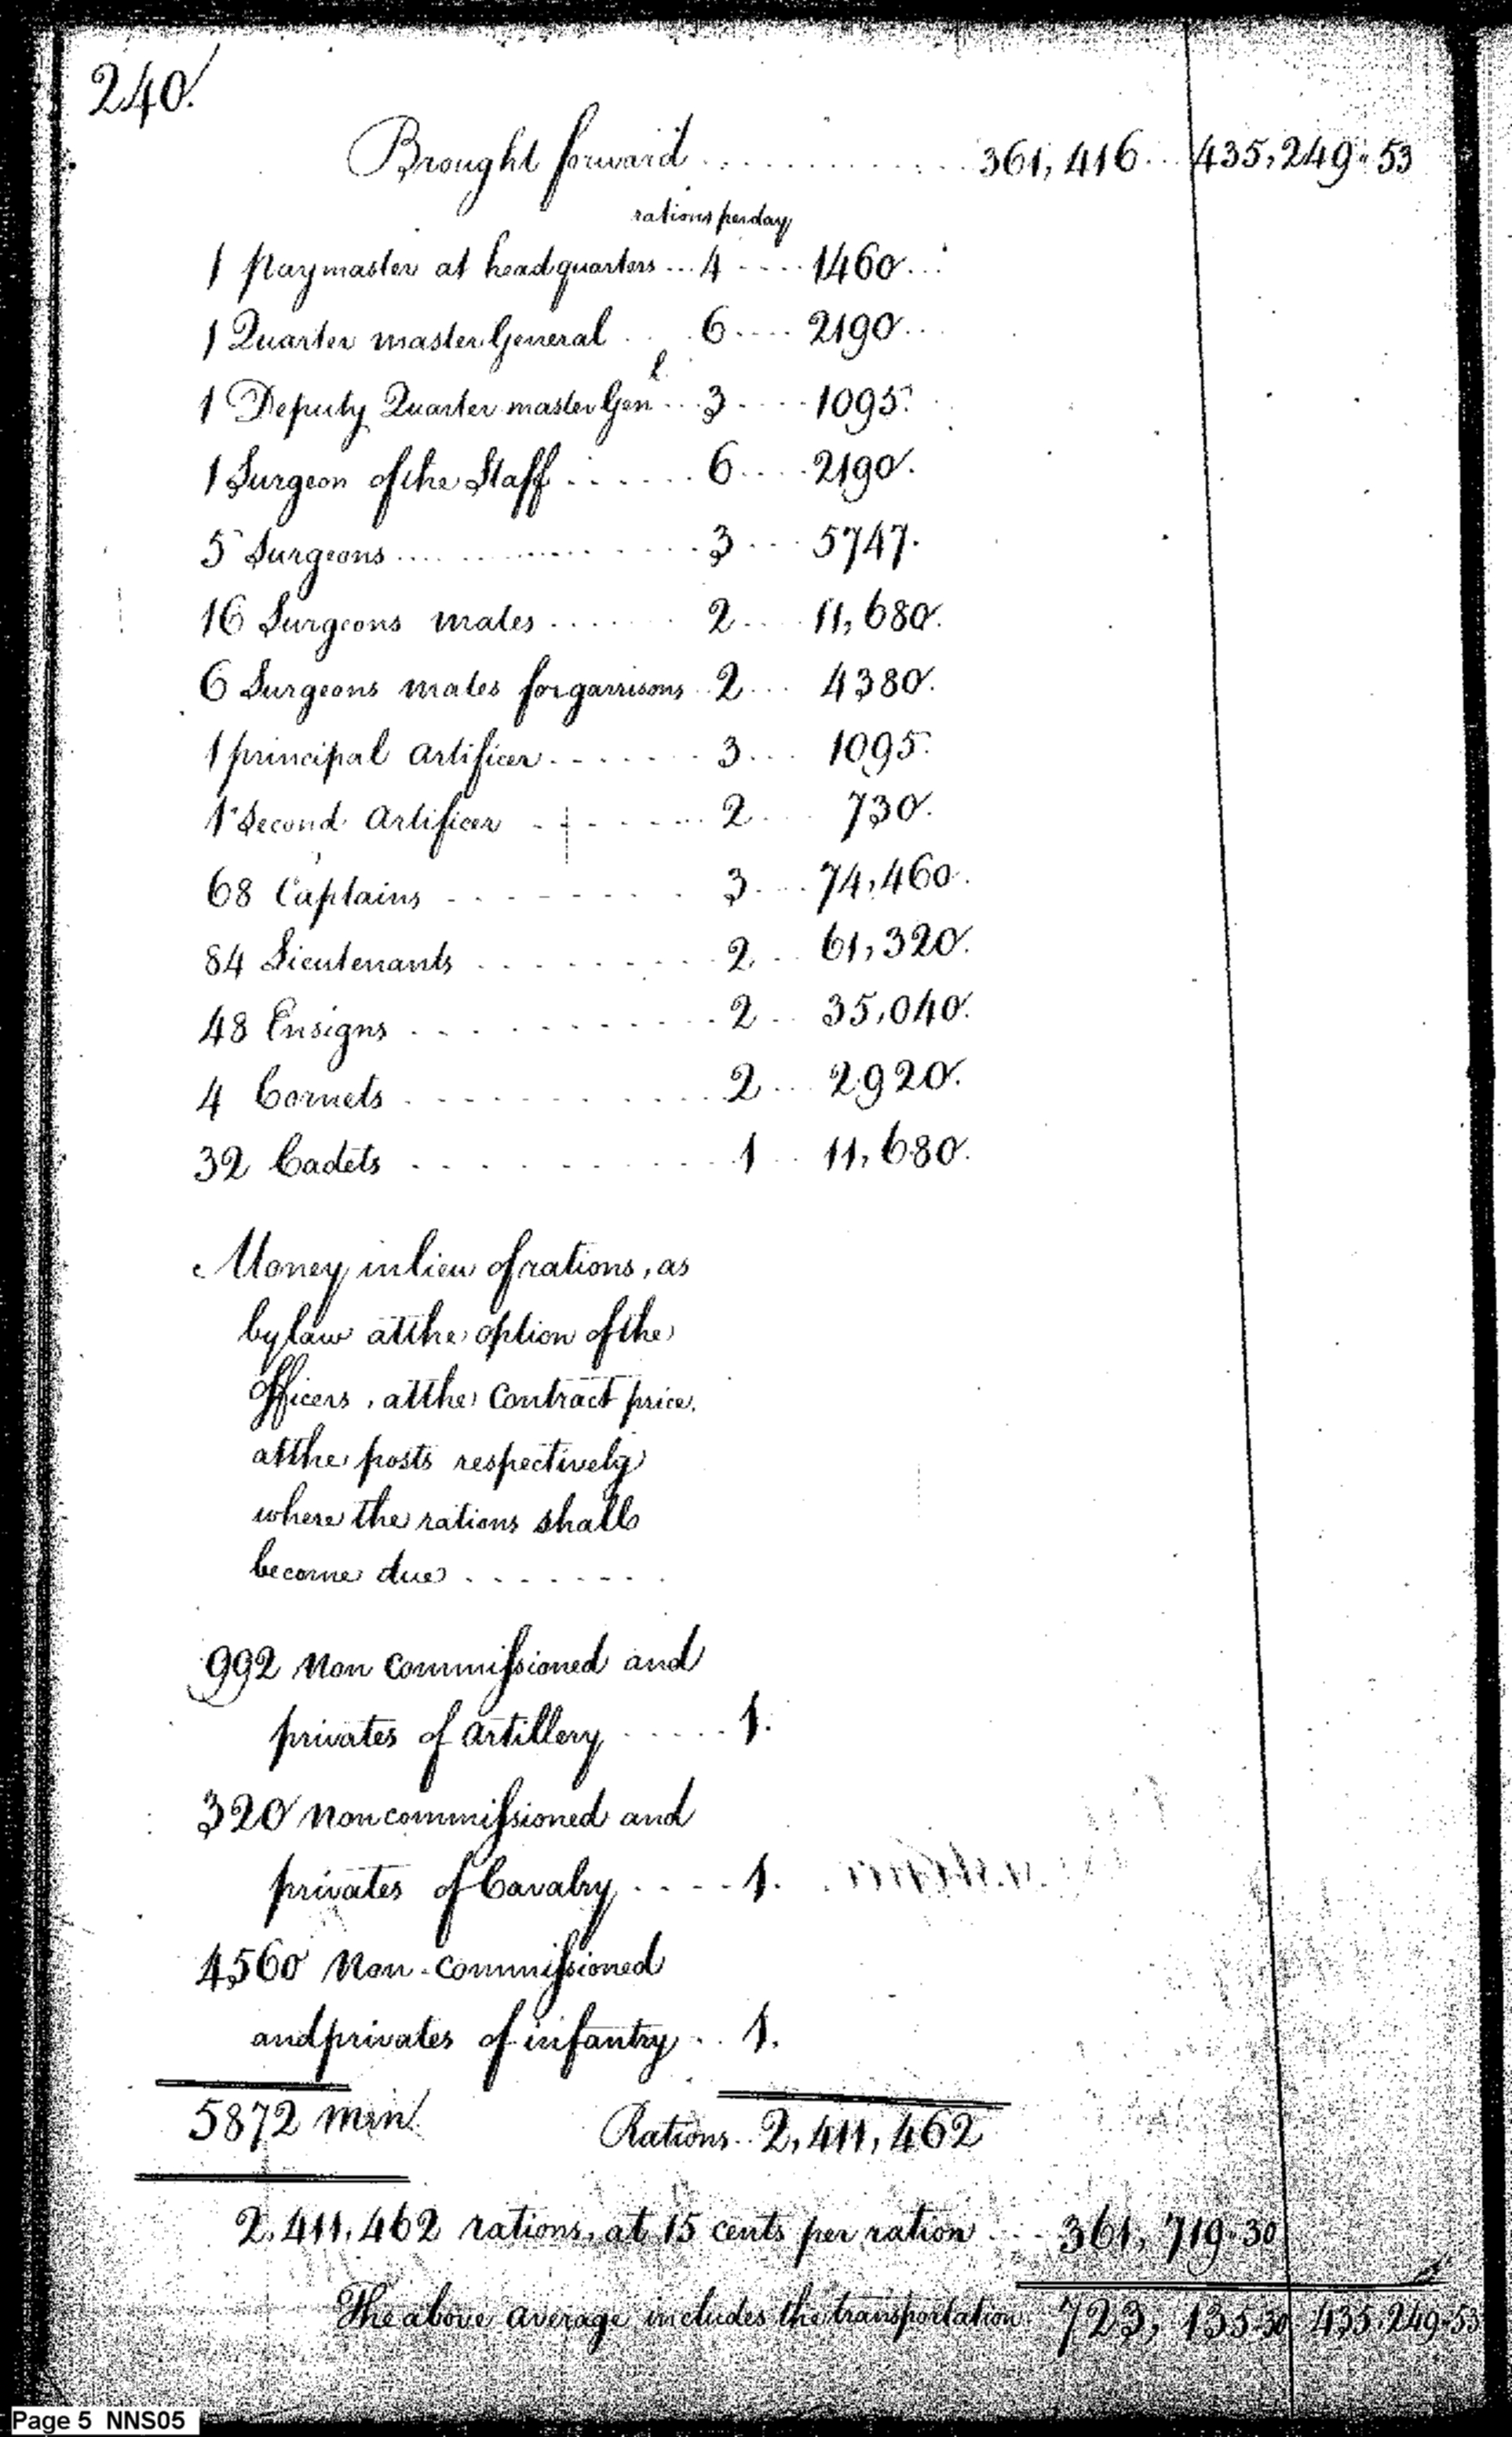 240.
Brought forward ............ 361,416... 435,249.53
rations per day
1 paymaster at headquarters ... 4 .... 1460...
1 Quarter master General ... 6 .... 2190...
1 Deputy Quarter master Genl ... 3 .... 1095.
1 Surgeon of the Staff ...... 6 .... 2190.
5 Surgeons ............... 3 ... 5747.
16 Surgeons mates ...... 2 .... 11,680.
6 Surgeons mates for garrisons .. 2 ... 4380.
1 principal artificer ....... 3 ... 1095.
1 Second Artificer ....... 2 ... 730.
68 Captains ........ 3 .... 74,460.
84 Lieutenants ......... 2 .. 61,320.
48 Ensigns ........... 2 .. 35,040.
4 Cornets ........... 2 ... 2920.
32 Cadets .......... 1 .. 11,680.
Money in lieu of rations, as
by law at the option of the
officers, at the Contract price,
at the posts respectively
where the rations shall
become due ........
992 Non Commissioned and
privates of artillery ..... 1.
320 Non commissioned and
privates of Cavalry .... 1.
4560 Non-Commissioned
and privates of infantry .. 1.
5872 men
Rations .. 2,411,462
2,411,462 rations, at 15 cents per ration ... 361,719.30
The above average includes the transportation. 723,135.30 435,249.53
Page 5 NNS05